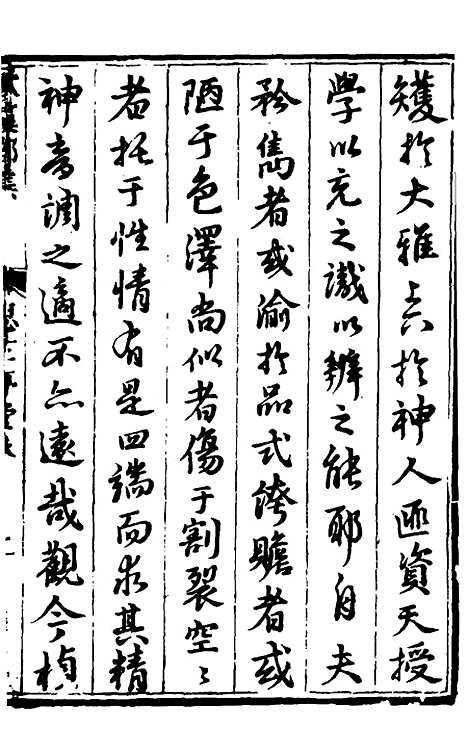 矱於大雅上下於神人匪資天授
學以充之識以辨之能耶自夫
矜雋者或渝於品式誇贍者或
陋于色澤尚似者傷于割裂空〻
者托于性情有是四端而求其精
神音調之適不亦遠哉觀今楨